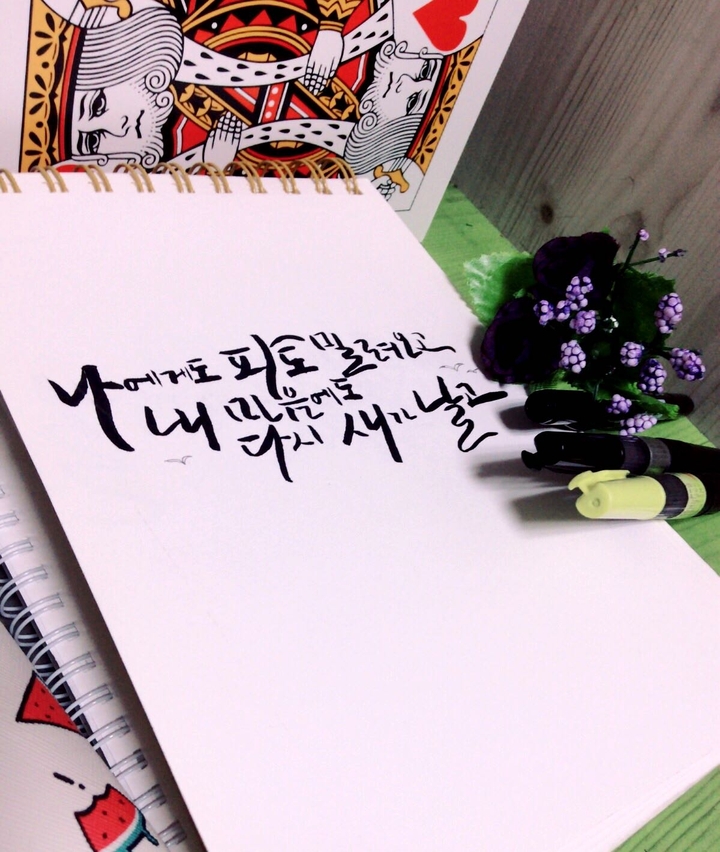 나에게도 파도 밀려오고
내 마음에도
다시 새가 날고